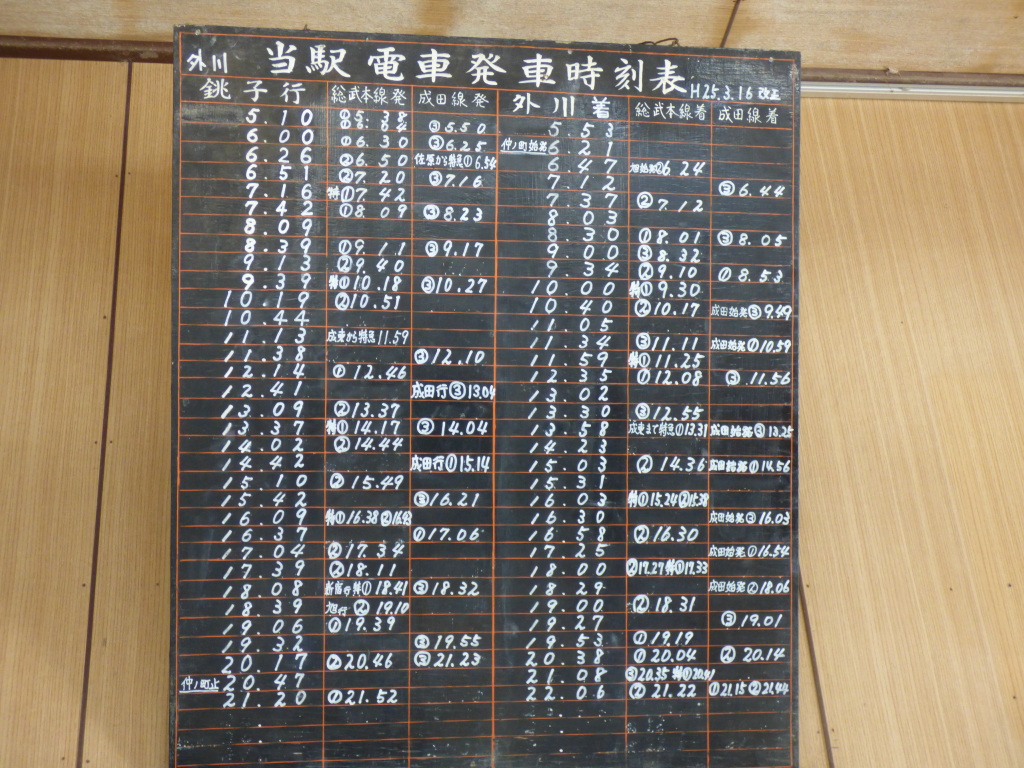 外川 当駅電車発車時刻表 H25.3.16 改正
銚子行 総武本線発 成田線発 外川着 総武本線着 成田線着
5.10 ①5.38 5.53
6.00 ①6.30 ③5.50 仲ノ町始発6.21
6.26 ②6.50 ③6.25 6.47 ②6.24
6.51 ②7.20 佐原から特急①6.54 7.12
7.16 特①7.42 ③7.16 7.37 ②7.12 ③6.44
7.42 ①8.09 ③8.23 8.03
8.09 8.30 ①8.01 ③8.05
8.39 ①9.11 ③9.17 9.00 ③8.32
9.13 ②9.40 9.34 ②9.10 ①8.53
9.39 特①10.18 ③10.27 10.00 特①9.30
10.19 ②10.51 10.40 ②10.17 成田始発③9.49
10.44 11.05
11.13 成東から特急11.59 11.34 ③11.11 成田始発①10.59
11.38 ③12.10 11.59 特①11.25
12.14 ①12.46 12.35 ①12.08 ③11.56
12.41 成田行③13.04 13.02
13.09 ②13.37 13.30 ③12.55
13.37 特①14.17 ③14.04 13.58 成東まで特急①13.31 成田始発③13.25
14.02 ②14.44 14.23
14.42 成田行①15.14 15.03 ②14.36 成田始発①14.56
15.10 ②15.49 15.31
15.42 ③16.21 16.03 特①15.24②15.38
16.09 特①16.38②16.43 16.30 成田始発③16.03
16.37 ①17.06 16.58 ②16.30
17.04 ②17.34 17.25 成田始発①16.54
17.39 ②18.11 18.00 ②17.27特①17.33
18.08 新宿行特①18.41 ③18.32 18.29 成田始発②18.06
18.39 旭行②19.10 19.00 ②18.31
19.06 ①19.39 19.27 ③19.01
19.32 19.55 19.53 ①19.19
20.17 ②20.46 ③21.23 20.38 ①20.04 ②20.14
仲ノ町止20.47 21.08 ③20.35特①20.41
21.20 ①21.52 22.06 ②21.22 ①21.15②21.44